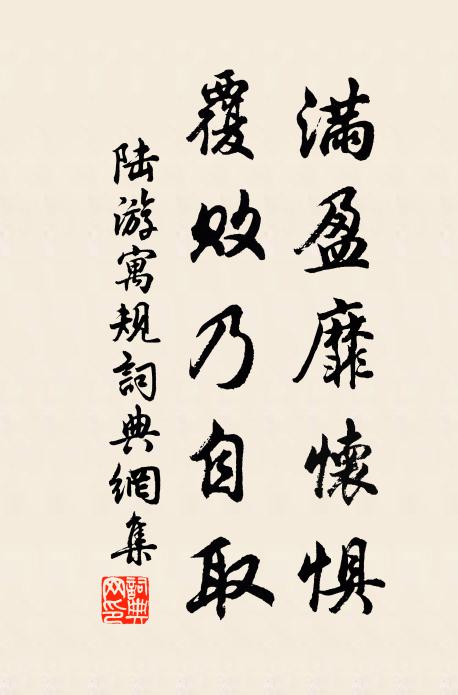 滿盈靡懷惧
覆敗乃自取
陆游寓規詞典網集
詞典网印